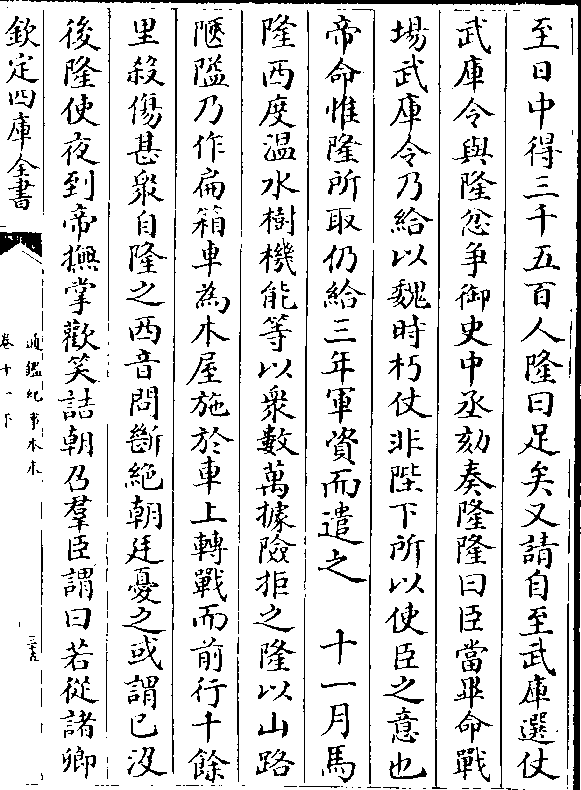 至日中得三千五百人隆曰足矣又請自至武庫選仗
武庫令與隆忿爭御史中丞劾奏隆隆曰臣當畢命戰
場武庫令乃給以魏時朽仗非陛下所以使臣之意也
帝命惟隆所取仍給三年軍資而遣之　十一月馬
隆西度溫水樹機能等以衆數萬據險拒之隆以山路
陿隘乃作扁箱車為木屋施於車上轉戰而前行千餘
里殺傷甚衆自隆之西音問斷絶朝廷憂之或謂已没
後隆使夜到帝撫掌歡笑詰朝召羣臣謂曰若從諸卿
欽定四庫全書
通鑑紀事本末
卷十一下